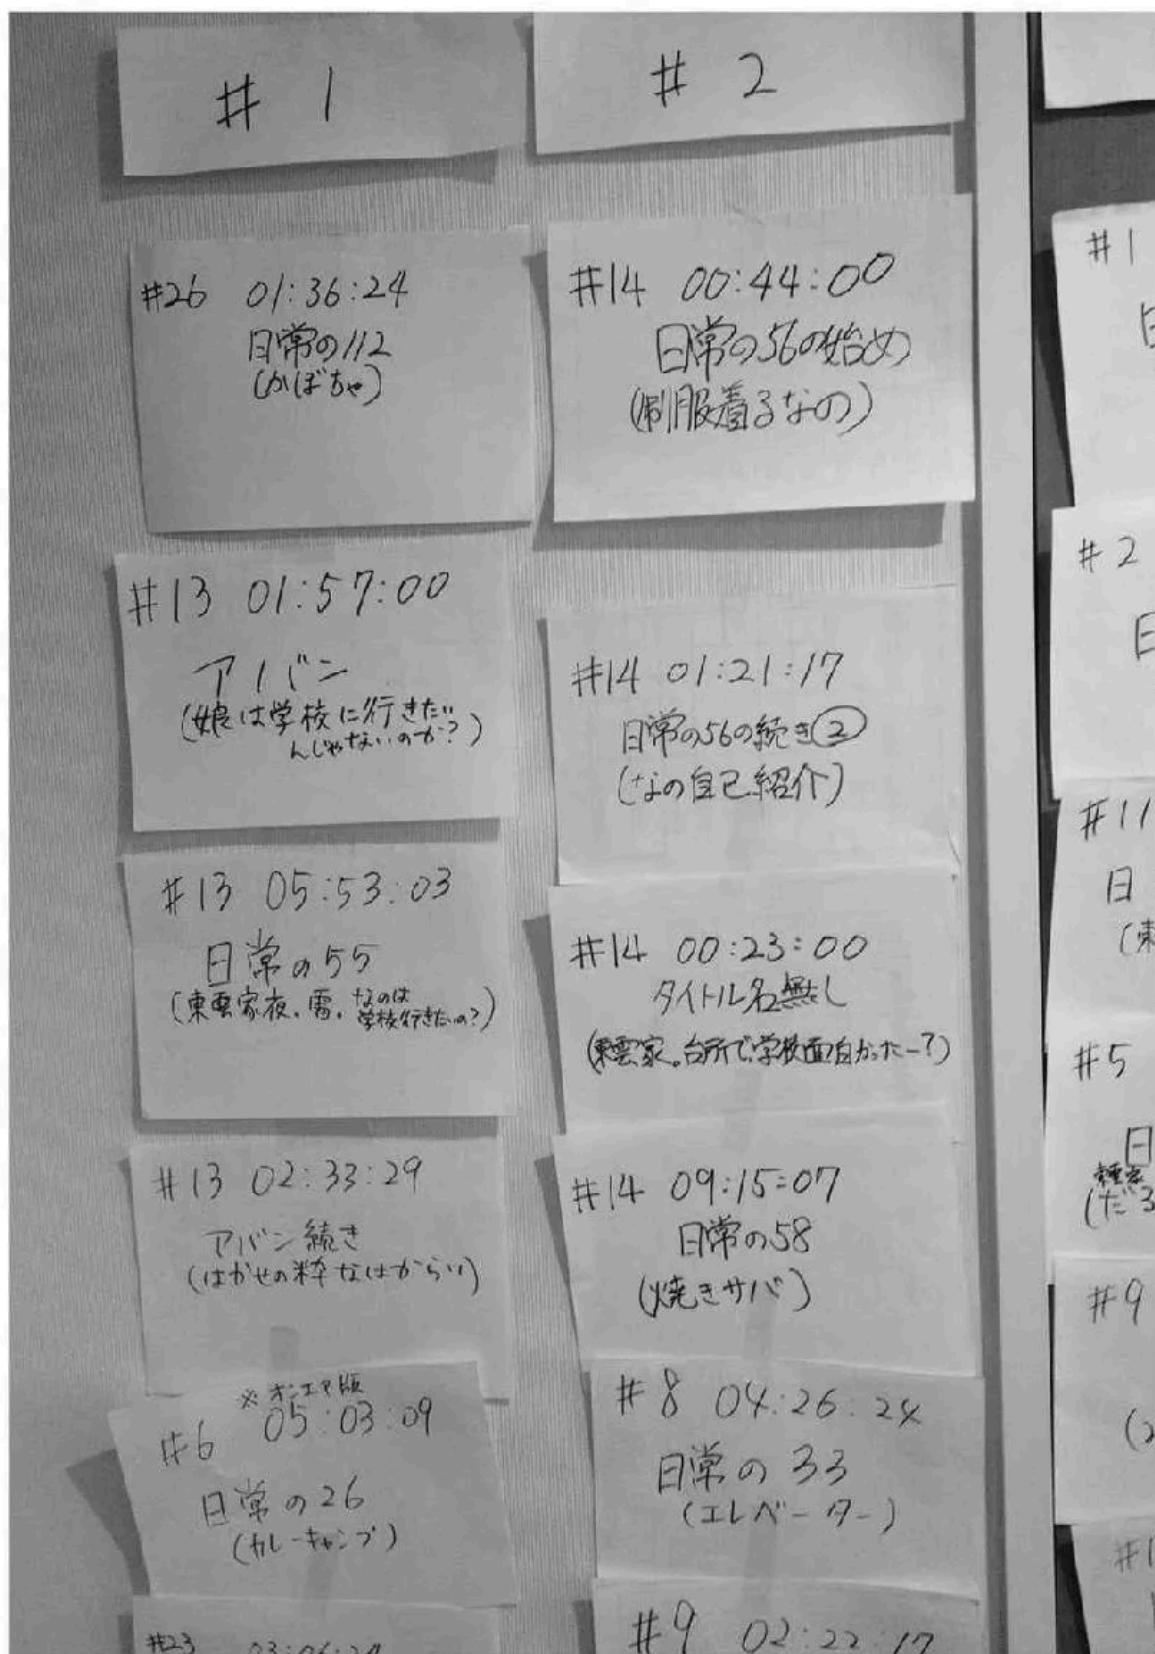 # 1
#26 01:36:24
日常の112
(かぼちゃ)
#13 01:57:00
アバン
(娘は学校に行きたい
んじゃないのか?)
#13 05:53:03
日常の55
(東雲家夜、雷、なのは
学校行きたいの?)
#13 02:33:29
アバン続き
(はかせの粋なはからい)
※オンエア版
#6 05:03:09
日常の26
(カレーキャンプ)
#23 03:06:24
# 2
#14 00:44:00
日常の56の始め
(制服着るなの)
#14 01:21:17
日常の56の続き②
(なの自己紹介)
#14 00:23:00
タイトル名無し
(東雲家。台所で学校面白かったー?)
#14 09:15:07
日常の58
(焼きサバ)
#8 04:26:24
日常の33
(エレベーター)
#9 02:22:17
#1
日
#2
日
#11
日
(東
#5
日
東雲家
(だる
#9
#1